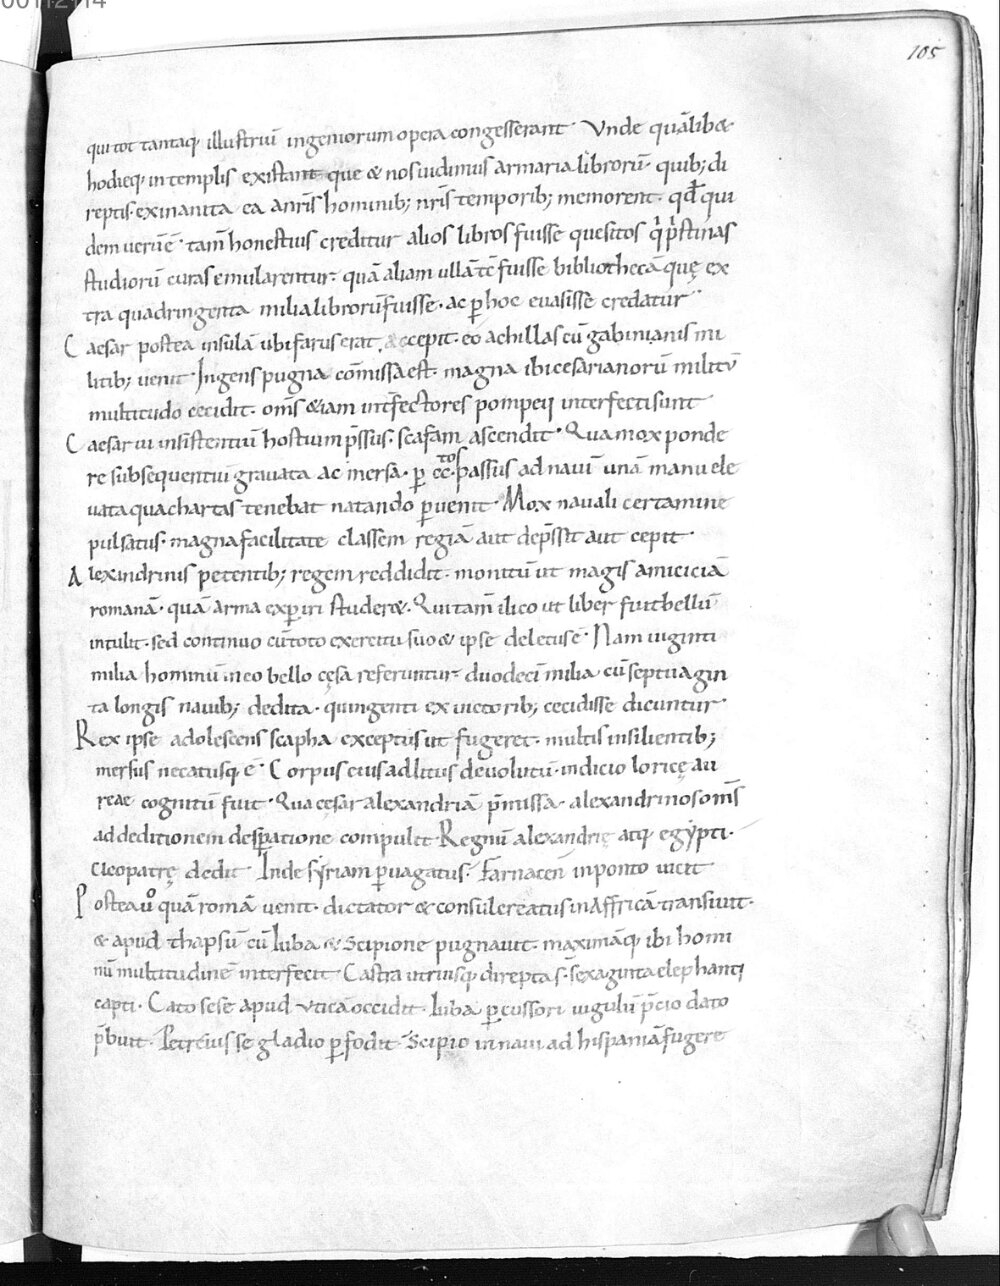 00112114
105
qui tot tantaq; illustriū ingeniorum opera congesserant· Vnde quālib&
hodieq; in templis exstant que & nos uidimus armaria librorū· quib; di
reptis exinanita ea anr̄is hominib; nr̄is temporib; memorent· qd̄ qui
dem uerū ē· tam̄ honestius creditur alios libros fuisse quesitos q̓ p̓stinas
studiorū curas emularentur· quā aliam ullā tc̄ fuisse bibliothecā quę ex
tra quadringenta milia librorū fuisse· ac p̱ hoc euasisse credatur·
Caesar postea insulā ubi farus erat, accepit· eo achillas cū gabinianis mi
litib; uenit· Ingens pugna cōmissa est· magna ibi cesarianorū militū
multitudo cecidit· om̄s &iam int̄fectores pompeij interfecti sunt·
Caesar ui insistentiū hostium p̄ssus· scafam ascendit· Qua mox ponde
re subsequentiū grauata ac mersa· p̱ cc·tos passus ad nauī unā manu ele
uata qua chartas tenebat natando p̱uenit· Mox nauali certamine
pulsatus· magna facilitate classem regiā aut dep̄ssit aut cepit·
Alexindrinis petentib; regem reddidit· monitū ut magis amiciciā
romanā· quā arma exp̱iri studer&· Qui tam̄ ilico ut liber fuit bellū
intulit· sed continuo cū toto exercitu suo & ipse deletus ē· Nam uiginti
milia hominū in eo bello cęsa referuntur· duodecī milia cū septuagin
ta longis nauib; dedita· quingenti ex uictorib; cecidisse dicuntur·
Rex ipse adolescens scapha exceptus ut fugeret· multis insilientib;
mersus necatusq; ē· Corpus eius ad litus deuolutū· indicio loricę au
reae cognitū fuit· Qua cęsar alexandriā p̄missa· alexandrinos om̄s
ad deditionem desp̱atione compulit· Regnū alexandrię atq; egẏpti·
cleopatrę dedit· Inde sẏriam p̱uagatus· Farnacen in ponto uicit·
Postea uº quā romā uenit· dictator & consul creatus in Affricā transiuit·
& apud thapsū cū Iuba & Scipione pugnauit· maximāq; ibi homi
nū multitudinē interfecit· Castra utriusq; direpta s̄· sexaginta elephanti
capti· Cato sese apud vticā occidit· Iuba p̱cussori iugulū p̄cio dato
p̄buit· Petreius se gladio p̱fodit· Scipio in naui ad hispaniā fugere